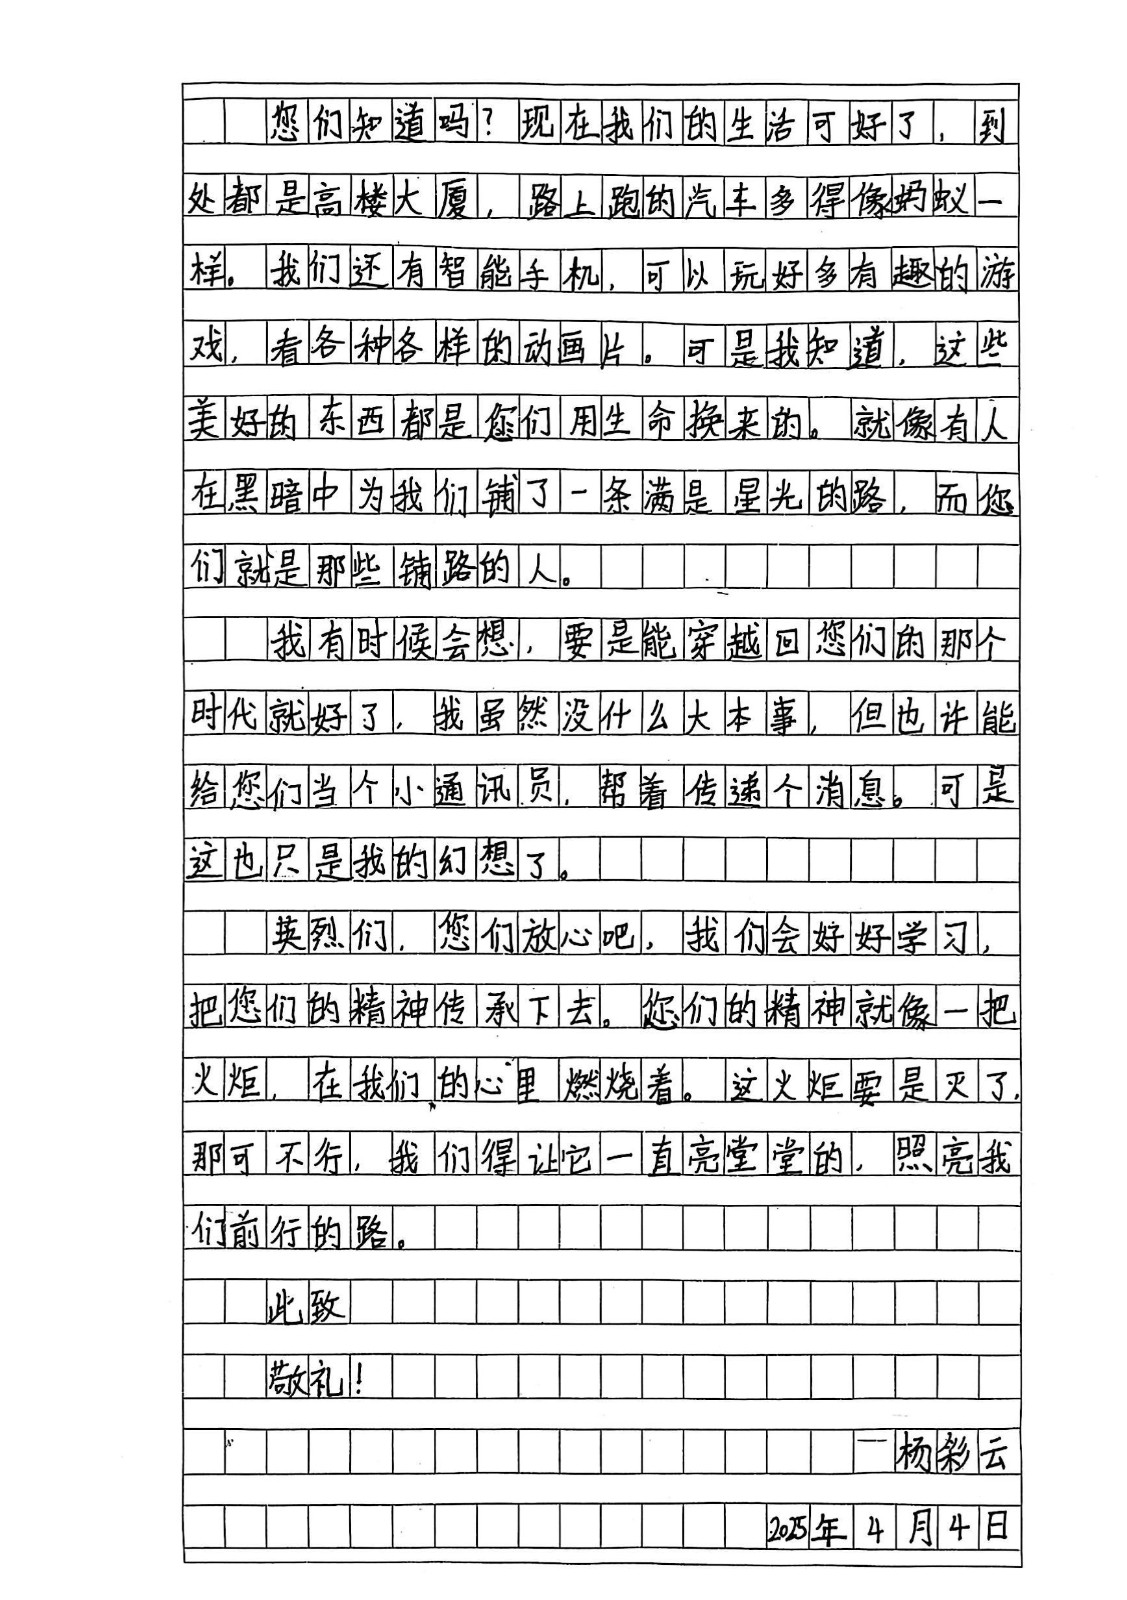 您们知道吗？现在我们的生活可好了，到
处都是高楼大厦，路上跑的汽车多得像蚂蚁一
样。我们还有智能手机，可以玩好多有趣的游
戏，看各种各样的动画片。可是我知道，这些
美好的东西都是您们用生命换来的。就像有人
在黑暗中为我们铺了一条满是星光的路，而您
们就是那些铺路的人。
我有时候会想，要是能穿越回您们的那个
时代就好了，我虽然没什么大本事，但也许能
给您们当个小通讯员，帮着传递个消息。可是
这也只是我的幻想了。
英烈们，您们放心吧，我们会好好学习，
把您们的精神传承下去。您们的精神就像一把
火炬，在我们的心里燃烧着。这火炬要是灭了，
那可不行，我们得让它一直亮堂堂的，照亮我
们前行的路。
此致
敬礼！
一杨彩云
2025年4月4日